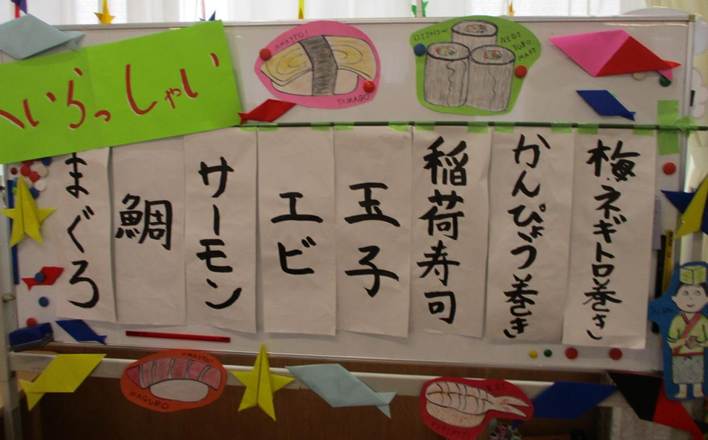 へいらっしゃい
梅ネギトロ巻き
かんぴょう巻き
稲荷寿司
玉子
エビ
サーモン
鯛
まぐろ
TAMAGO
MAGURO